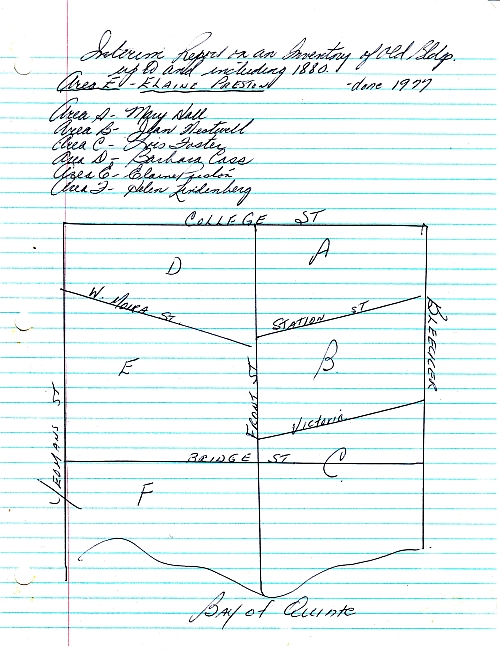 Interim Report on an Inventory of Old Bldgs.
up to and including 1880.
Area E - ELAINE PRESTON - done 1977
Area A - Mary Hall
Area B - Jean Nestwell
Area C - Lois Foster
Area D - Barbara Cass
Area E - Elaine Preston
Area F - Helen Lindenberg
COLLEGE ST
D
A
W. MOIRA ST
STATION ST
BLEECKER
E
B
FRONT ST
Victoria
YEOMANS ST
BRIDGE ST
C
F
Bay of Quinte